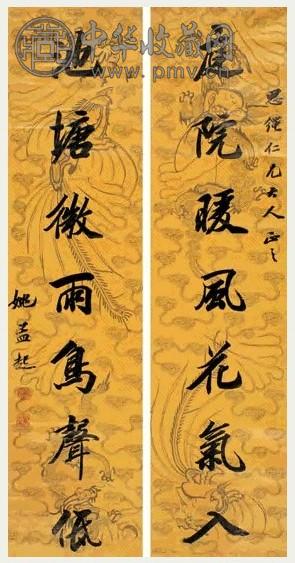 中华收藏网
www.pmv.cn
仁兄大人正之
庭院暖風花氣入
池塘微雨鳥聲低
姚孟起